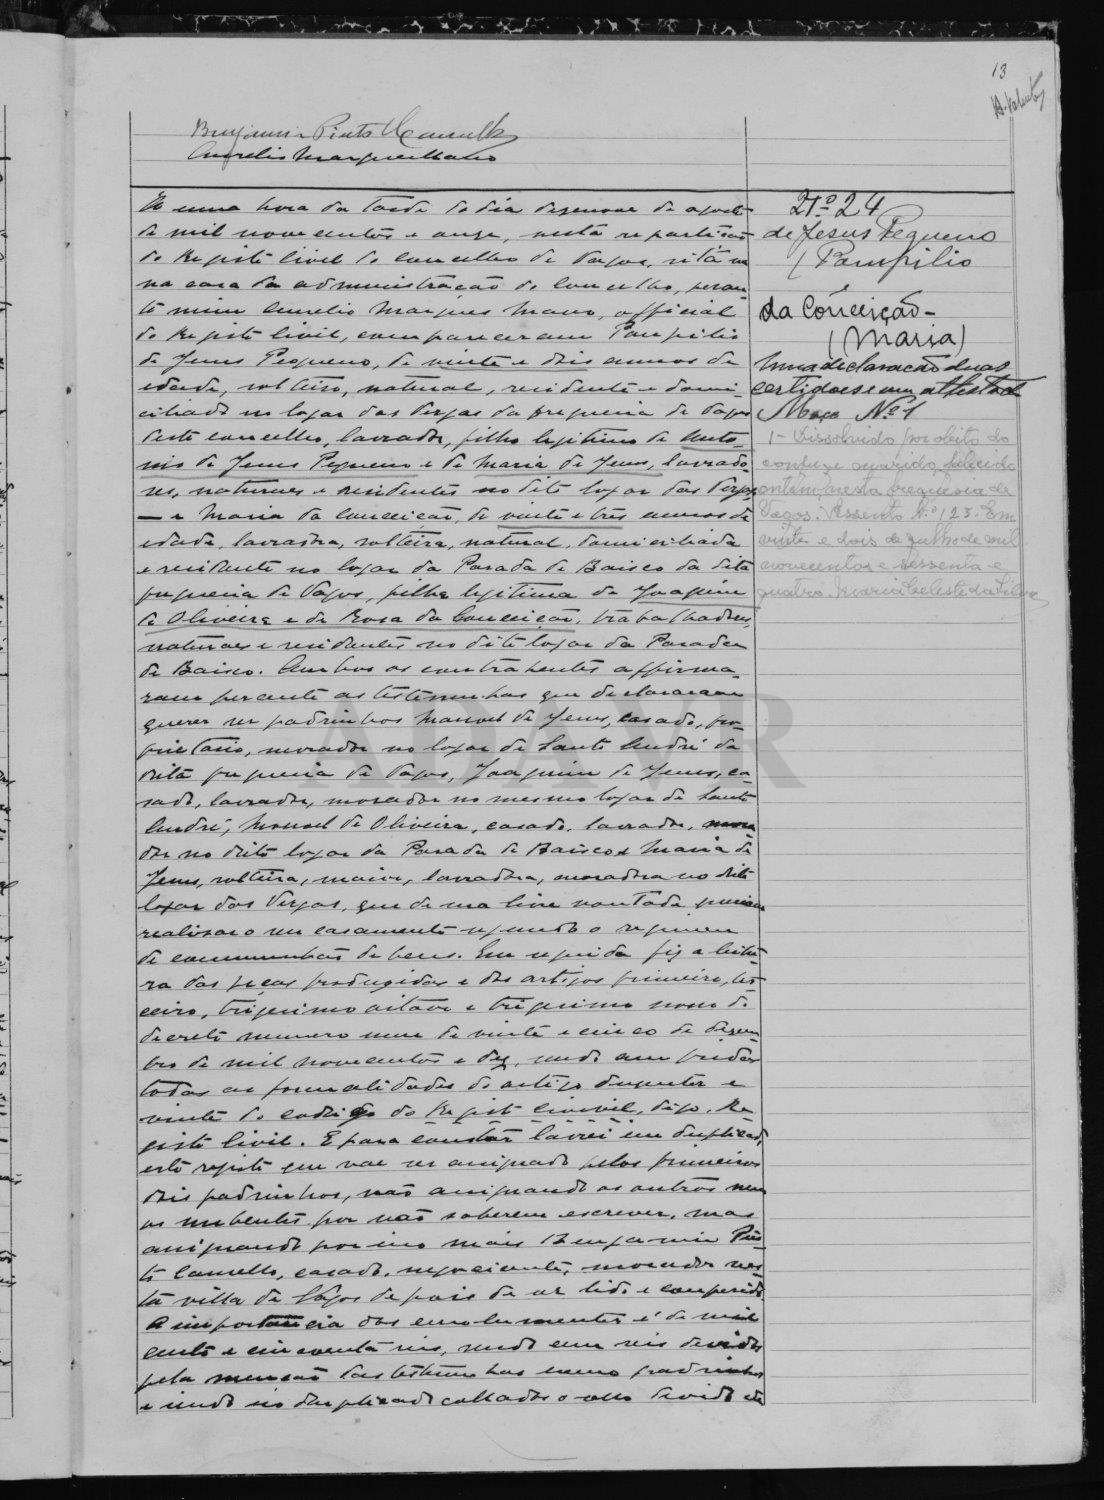 13
Benjamin Pinto Camello
Aurelio Marques Mano
Nº 24
de Jesus Pequeno
(Pampilio
da Conceição -
(Maria)
Uma declaração duas
certidões e um attestado
Maço Nº 1
1 - Dissolvido por obito do
conjuge marido, falecido
ontem, nesta freguesia de
Vagos. Assento N.º 123. Em
vinte e dois de julho de mil
novecentos e sessenta e
quatro. Maria Celeste da Silva
A uma hora da tarde do dia dezenove de agosto
de mil novecentos e onze, nesta repartição
do Registo Civil do concelho de Vagos, sita na
na casa da administração do concelho, peran-
te mim Aurelio Marques Mano, official
do Registo Civil, compareceram Pampilio
de Jesus Pequeno, de vinte e dois annos de
edade, solteiro, natural, residente e domi-
ciliado no logar das Vergas da freguesia de Vagos
deste concelho, lavrador, filho legitimo de Anto-
nio de Jesus Pequeno e de Maria de Jesus, lavrado-
res, naturaes e residentes no dito logar das Vergas,
— e Maria da Conceição, de vinte e tres annos de
edade, lavradora, solteira, natural, domiciliada
e residente no logar da Parada de Baixo da dita
freguesia de Vagos, filha legitima de Joaquim
de Oliveira e de Rosa da Conceição, trabalhadores,
naturaes e residentes no dito logar da Parada
de Baixo. Ambos os contrahentes affirma-
ram perante as testemunhas que declararam
querer ser padrinhos Manoel de Jesus, casado, pro-
prietario, morador no logar de Santo André da
dita freguesia de Vagos, Joaquim de Jesus, ca-
sado, lavrador, morador no mesmo logar de Santo
André, Manoel de Oliveira, casado, lavrador, mora
dor no dito logar da Parada de Baixo e Maria de
Jesus, solteira, maior, lavradora, moradora no dito
logar das Vergas, que de sua livre vontade queriam
realisar o seu casamento segundo o regimen
de communhão de bens. Em seguida fiz a leitu-
ra das peças produzidas e dos artigos primeiro, ter-
ceiro, trigesimo oitavo e trigesimo nono do
decreto numero um de vinte e cinco de dezem-
bro de mil novecentos e dez, sendo cumpridas
todas as formalidades do artigo duzentos e
vinte do codigo do Registo civivil, digo, Re-
gisto Civil. E para constar lavrei em duplicado
este registo que vae ser assignado pelos primeiros
dois padrinhos, não assignando os outros nem
os nubentes por não saberem escrever, mas
assignando por isso mais Benjamin Pin-
to Camello, casado, negociante, morador nes-
ta villa de Vagos depois de ser lido e conferido
A importancia dos emolumentos é de mil
cento e cincoenta reis, sendo cem reis devidos
pela menção das testemunhas como padrinhos
e sendo no duplicado collado o sello devido de
ADAVR